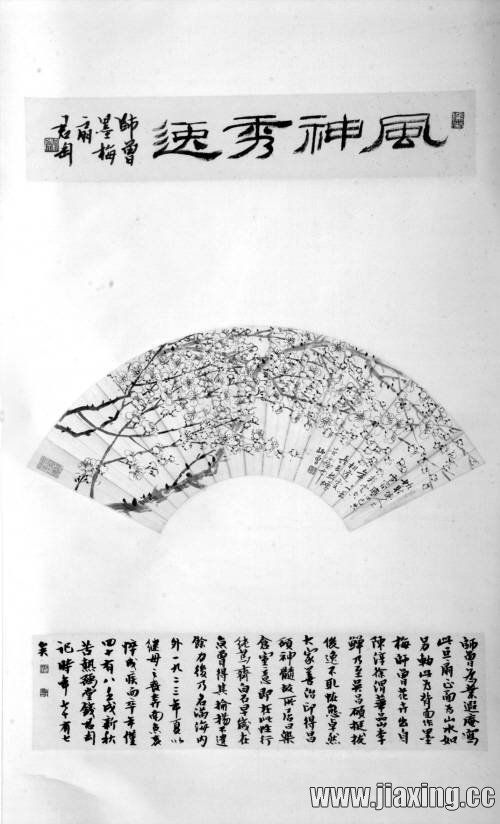 風神秀逸
師曾
墨梅
扇
君匋
師曾為葉遐庵寫
此扇正面為山水如
另軸此為背面作墨
梅師曾花卉出自
陳淳徐渭華嵒李
鱓乃至吳昌碩挺拔
俊逸不取恆態卓然
大家善治印得昌
碩神髓故所居曰槃
倉室意即在此性行
純篤齊白石早歲在
京曾得其揄揚不遺
餘力後乃名滿海內
外一九二三年夏以
繼母之喪奔南京哀
悴成疾而卒年僅
四十有八壬戌新秋
苦熱堂錢君匋
記時年七十有七
矣
www.jiaxing.cc